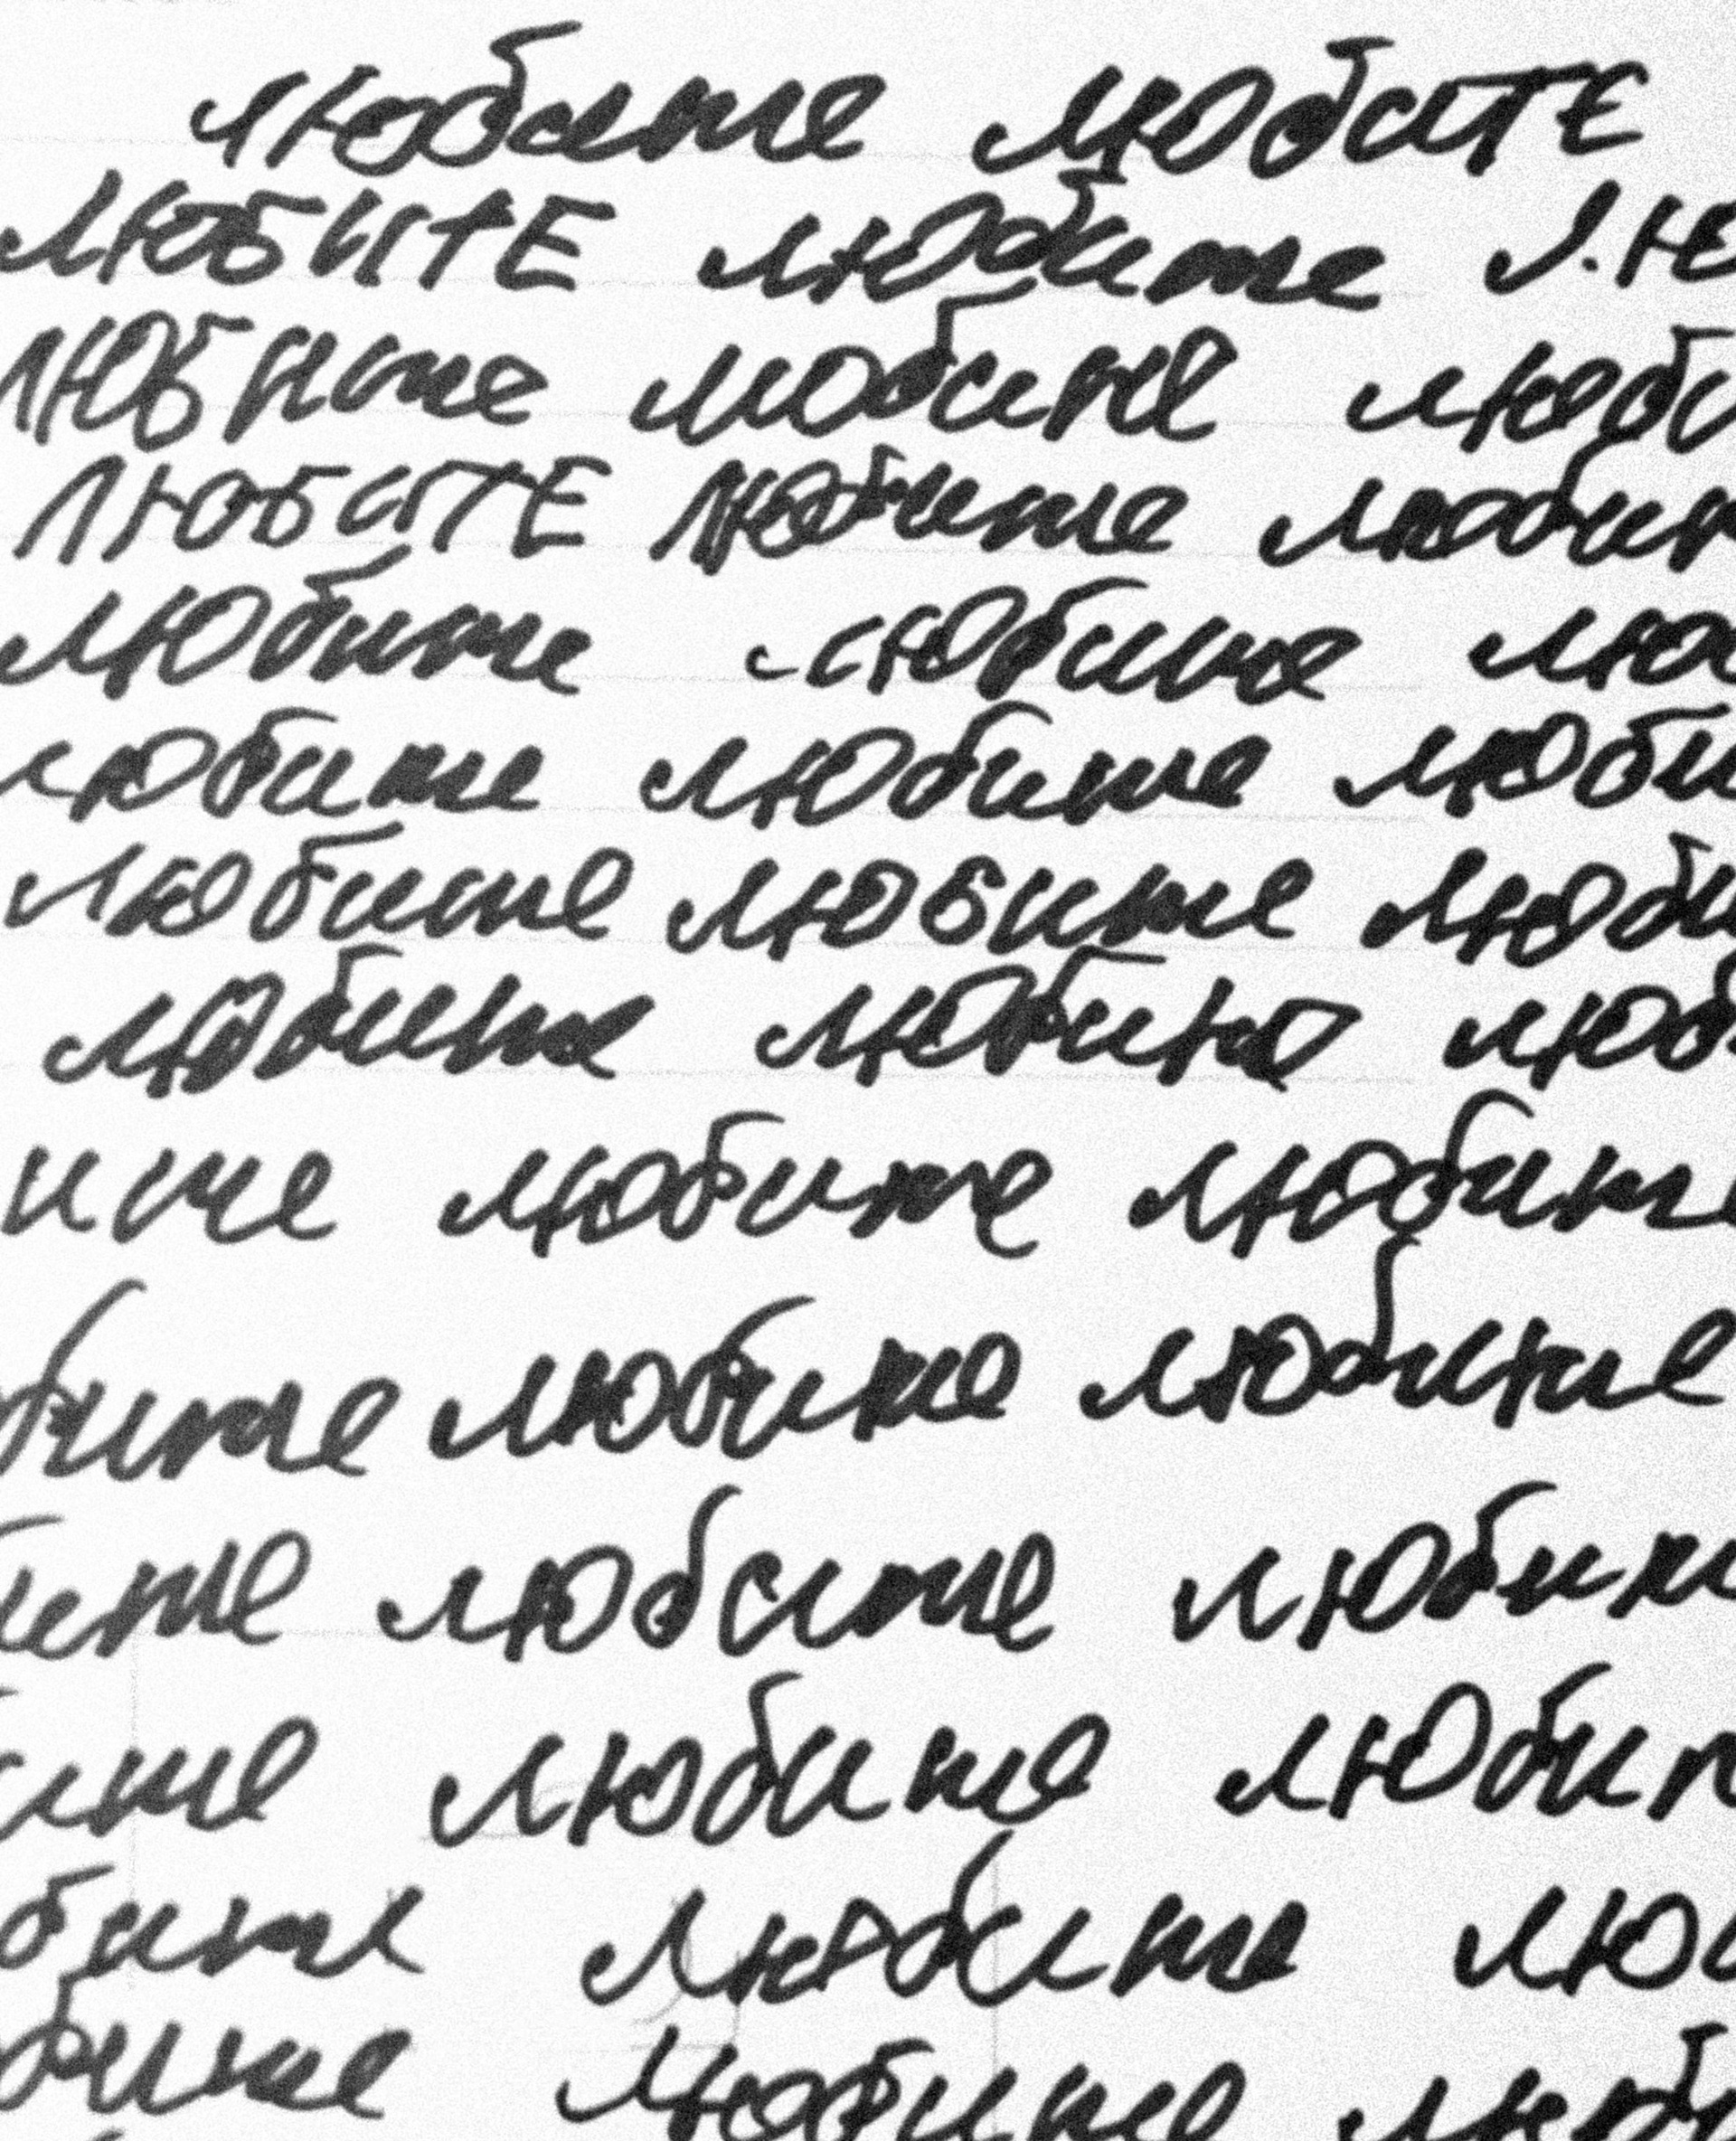 любите любитЕ
ЛЮБИТЕ любите лю
ЛЮБите любите люби
ЛЮБИТЕ любите любит
любите любите лю
любите любите люби
любите любите люби
любите любите люб
ите любите любите
бите любите любите
ите любите любит
ите любите любит
бите любите лю
бите любите люб